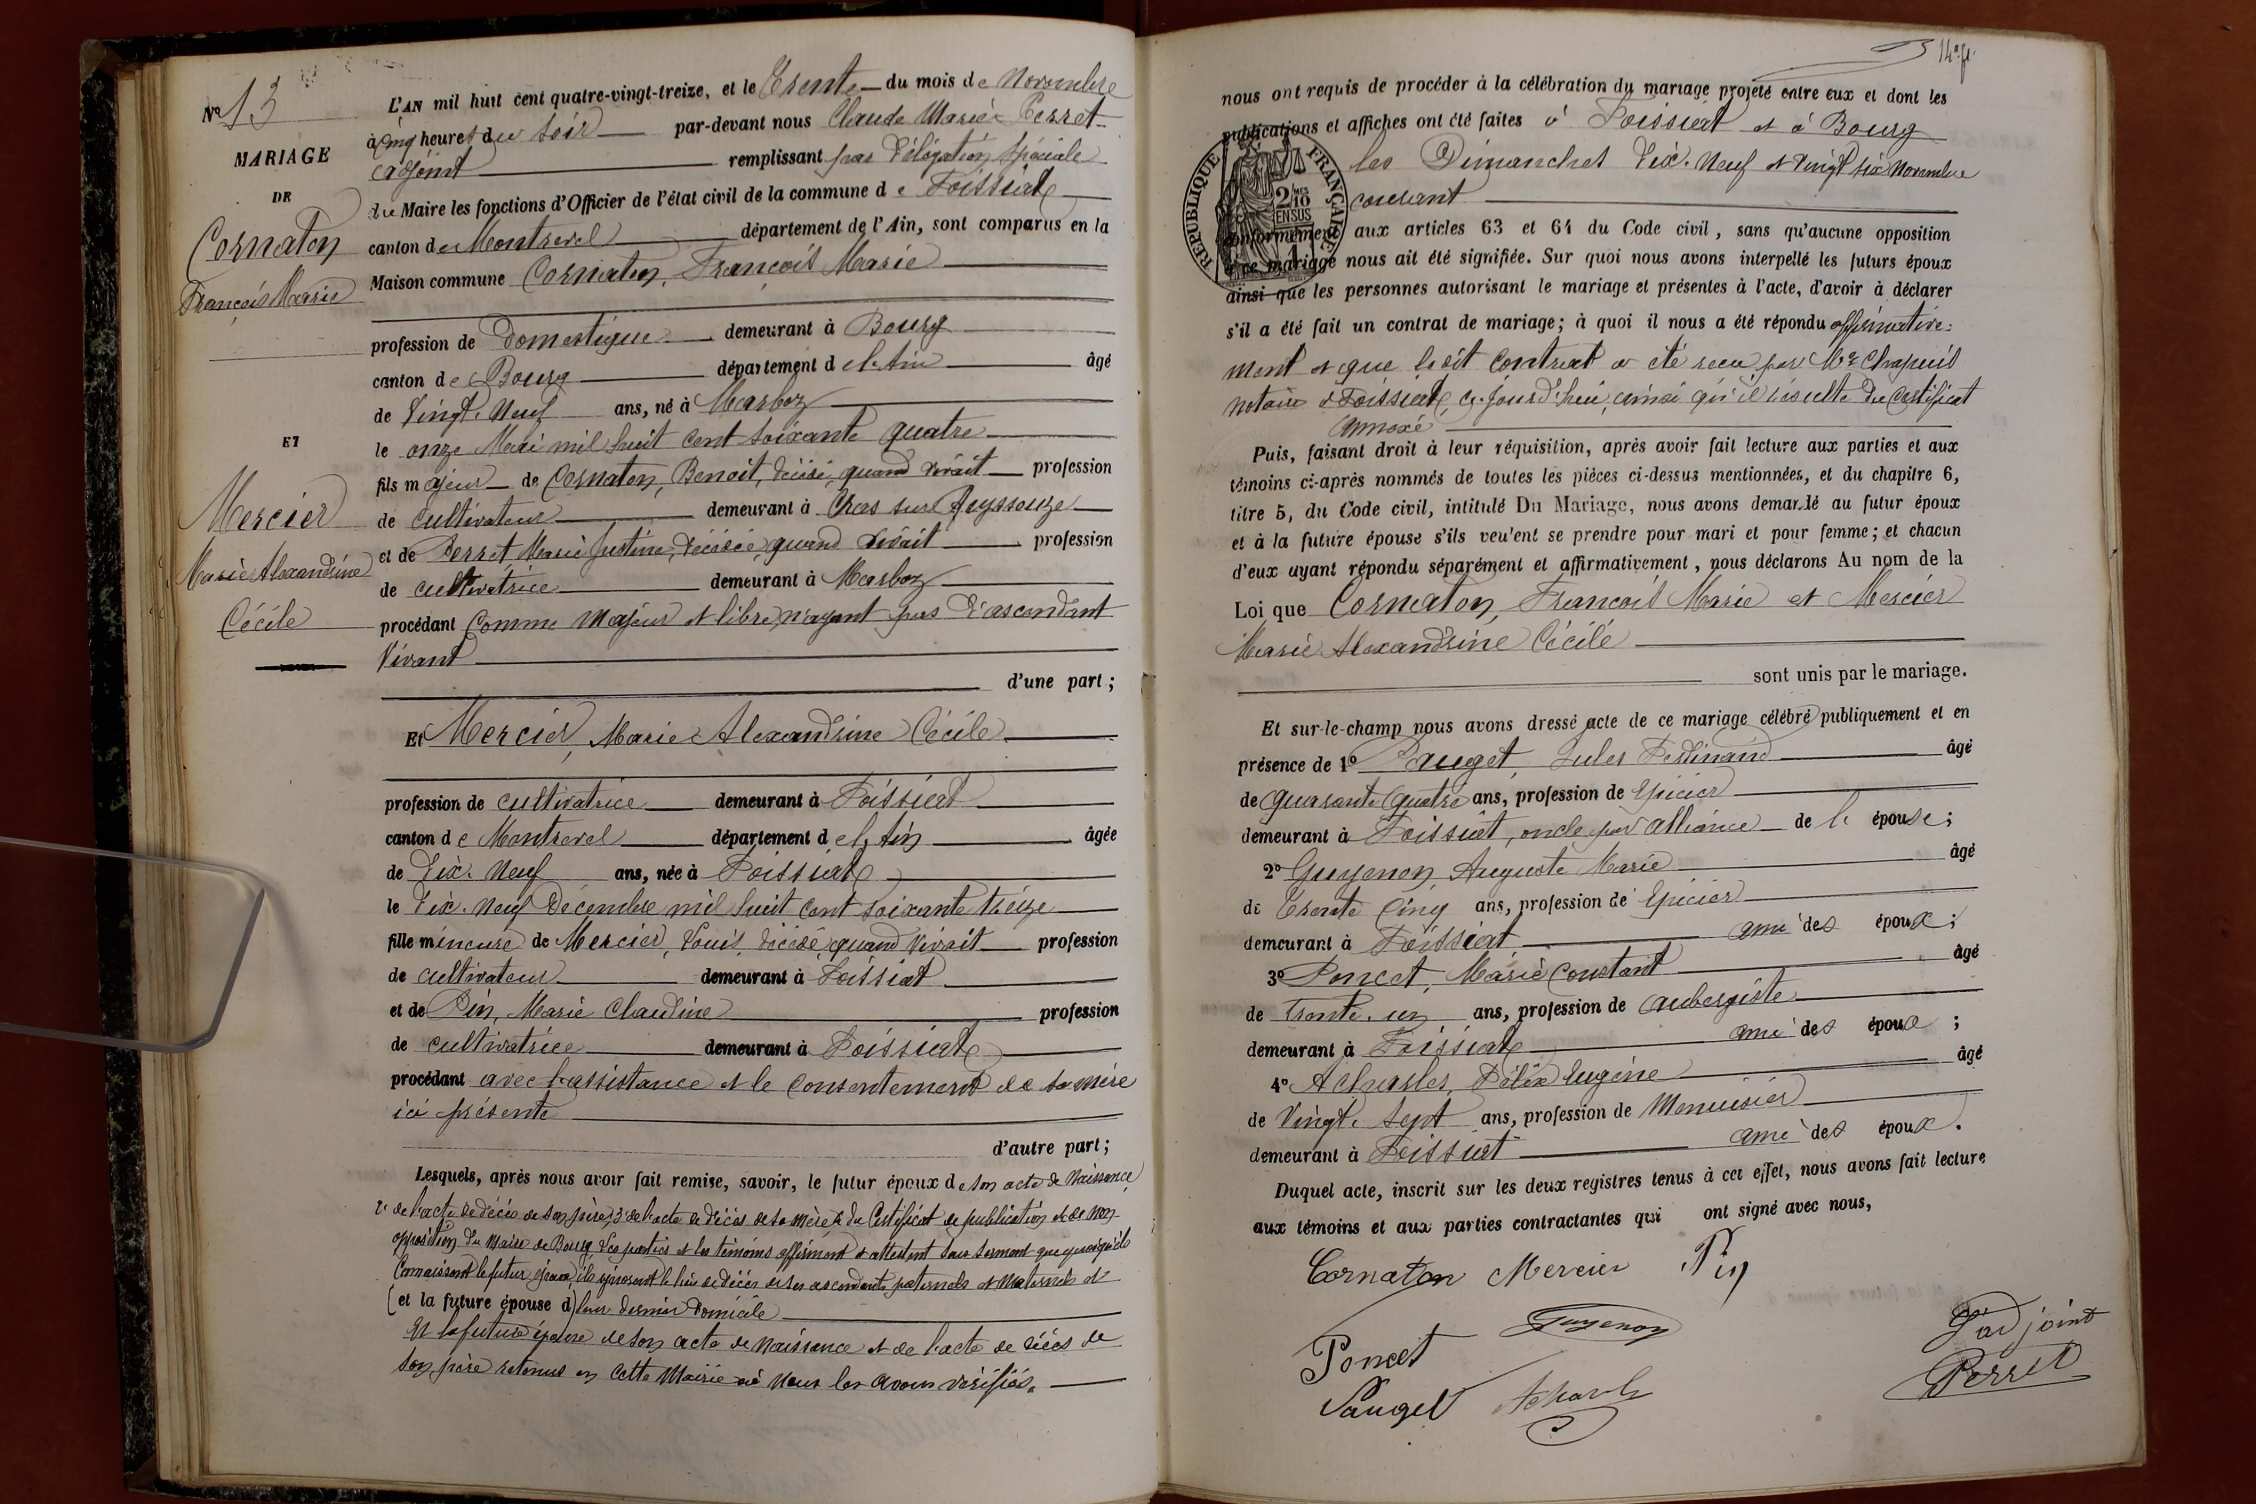 No 13
MARIAGE
DE
Cornaton
François Marie
ET
Mercier
Marie Alexandrine
Cécile
L'AN mil huit cent quatre-vingt-treize, et le Trente du mois de Novembre
à cinq heures du soir par-devant nous Claude Marie Perret
adjoint remplissant par délégation spéciale
du Maire les fonctions d'Officier de l'état civil de la commune de Foissiat
canton de Montrevel département de l'Ain, sont comparus en la
Maison commune Cornaton, François Marie
profession de Domestique demeurant à Bourg
canton de Bourg département de l'Ain âgé
de Vingt-Neuf ans, né à Marboz
le onze Mai mil huit cent soixante quatre
fils majeur de Cornaton, Benoit, décédé, quand vivait profession
de cultivateur demeurant à Cras sur Reyssouze
et de Perret, Marie Justine, décédée, quand vivait profession
de cultivatrice demeurant à Marboz
procédant comme Majeur et libre, n'ayant pas d'ascendant
vivant
d'une part ;
Et Mercier, Marie Alexandrine Cécile
profession de cultivatrice demeurant à Foissiat
canton de Montrevel département de l'Ain âgée
de Dix-Neuf ans, née à Foissiat
le Dix-Neuf Décembre mil huit cent soixante treize
fille mineure de Mercier, Louis, décédé, quand vivait profession
de cultivateur demeurant à Foissiat
et de Pin, Marie Claudine profession
de cultivatrice demeurant à Foissiat
procédant avec l'assistance et le consentement de sa mère
ici présente
d'autre part ;
Lesquels, après nous avoir fait remise, savoir, le futur époux de son acte de Naissance,
2º de l'acte de décès de son père, 3º de l'acte de décès de sa mère, 4º du Certificat de publication et de non-
opposition du Maire de Bourg. Les parties et les témoins affirment et attestent sous serment que quoiqu'ils
connaissent le futur époux, ils ignorent le lieu de décès de ses ascendants paternels et maternels et
(et la future épouse d) leur dernier domicile
Et la future épouse de son acte de Naissance et de l'acte de décès de
son père retenus en cette Mairie où nous les avons vérifiés.
14e ft.
nous ont requis de procéder à la célébration du mariage projeté entre eux et dont les
publications et affiches ont été faites à Foissiat et à Bourg
les Dimanches Dix-Neuf et vingt six Novembre
courant
REPUBLIQUE FRANÇAISE
2/10 EN SUS
conformément aux articles 63 et 64 du Code civil, sans qu'aucune opposition
à ce mariage nous ait été signifiée. Sur quoi nous avons interpellé les futurs époux
ainsi que les personnes autorisant le mariage et présentes à l'acte, d'avoir à déclarer
s'il a été fait un contrat de mariage ; à quoi il nous a été répondu affirmative-
ment et que ledit contrat a été reçu par Me Chapuis
notaire à Foissiat, ce jourd'hui, ainsi qu'il résulte du certificat
annexé
Puis, faisant droit à leur réquisition, après avoir fait lecture aux parties et aux
témoins ci-après nommés de toutes les pièces ci-dessus mentionnées, et du chapitre 6,
titre 5, du Code civil, intitulé Du Mariage, nous avons demandé au futur époux
et à la future épouse s'ils veulent se prendre pour mari et pour femme ; et chacun
d'eux ayant répondu séparément et affirmativement, nous déclarons Au nom de la
Loi que Cornaton, François Marie et Mercier
Marie Alexandrine Cécile
sont unis par le mariage.
Et sur-le-champ nous avons dressé acte de ce mariage célébré publiquement et en
présence de 1º Pauget, Jules Ferdinand âgé
de quarante quatre ans, profession de Epicier
demeurant à Foissiat, oncle par alliance de l' épouse ;
2º Guyenon, Auguste Marie âgé
de Trente Cinq ans, profession de Epicier
demeurant à Foissiat ami des époux ;
3º Poncet, Marie Constant âgé
de Trente-un ans, profession de aubergiste
demeurant à Foissiat ami des époux ;
4º Acharles, Félix Eugène âgé
de Vingt-sept ans, profession de Menuisier
demeurant à Foissiat ami des époux.
Duquel acte, inscrit sur les deux registres tenus à cet effet, nous avons fait lecture
aux témoins et aux parties contractantes qui ont signé avec nous,
Cornaton Mercier Pin
Guyenon
Poncet
L'adjoint
Perret
Pauget